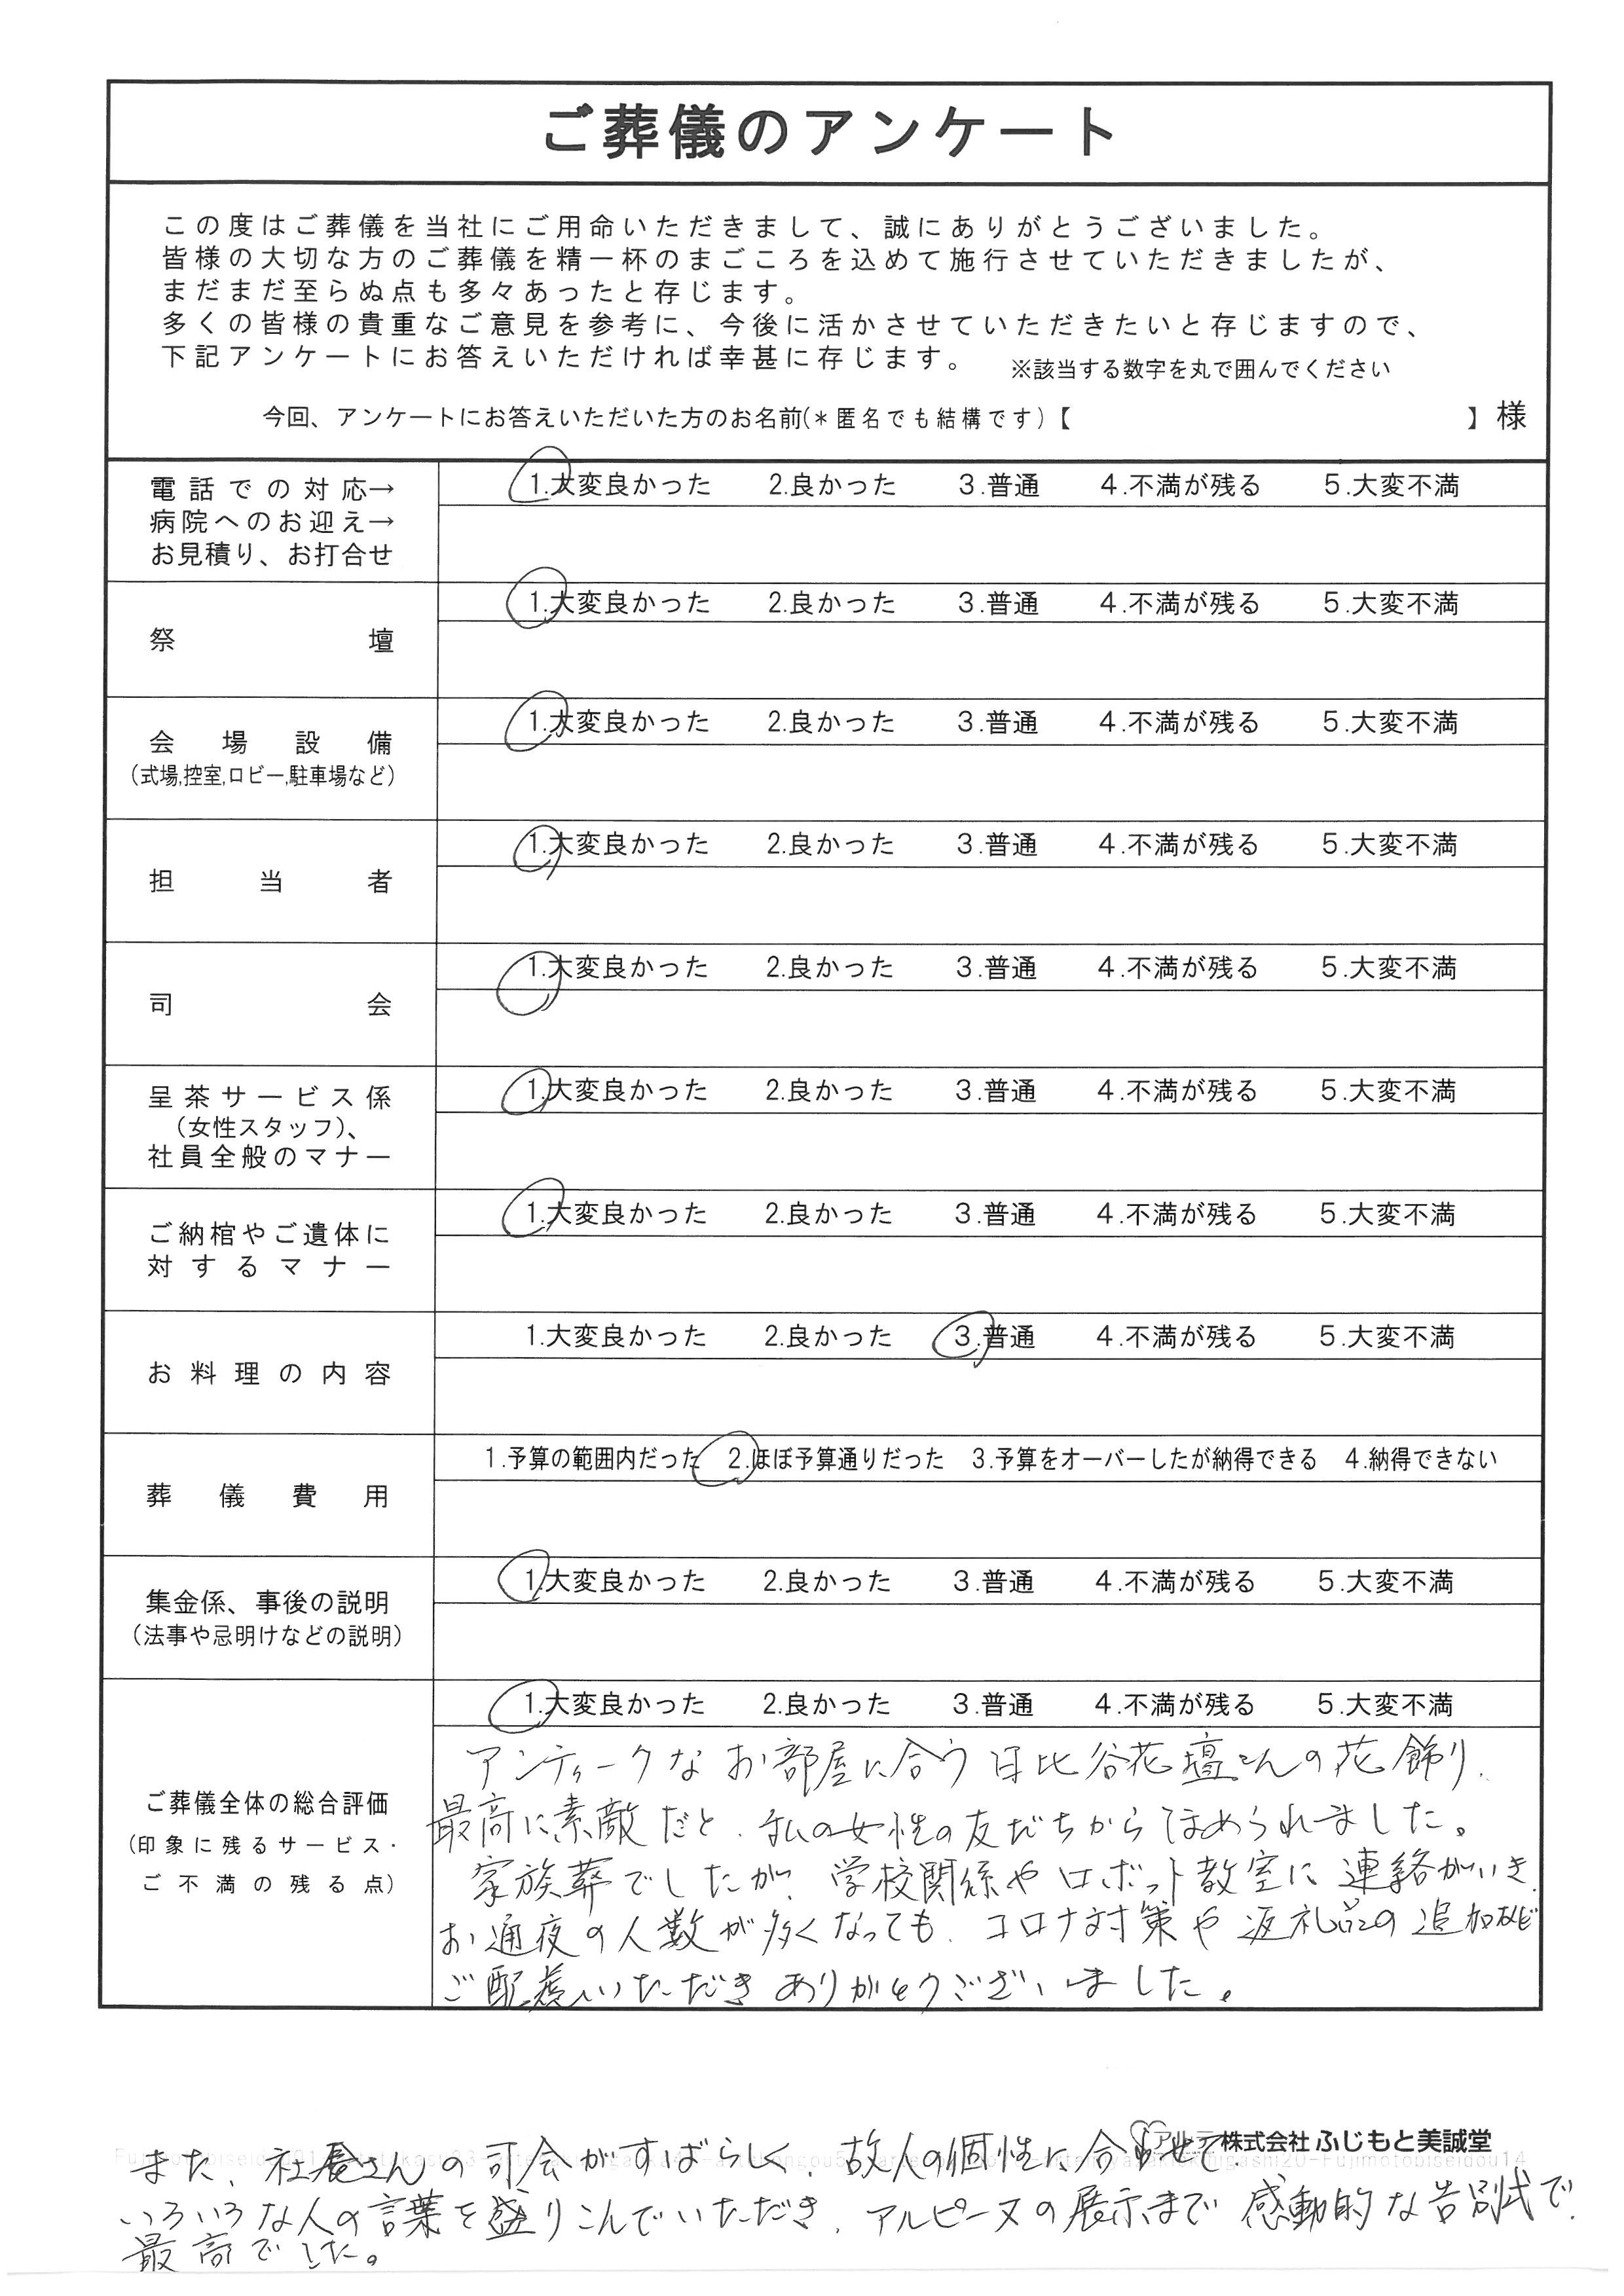 ご葬儀のアンケート
この度はご葬儀を当社にご用命いただきまして、誠にありがとうございました。
皆様の大切な方のご葬儀を精一杯のまごころを込めて施行させていただきましたが、
まだまだ至らぬ点も多々あったと存じます。
多くの皆様の貴重なご意見を参考に、今後に活かさせていただきたいと存じますので、
下記アンケートにお答えいただければ幸甚に存じます。 ※該当する数字を丸で囲んでください
今回、アンケートにお答えいただいた方のお名前(*匿名でも結構です)【 】様
電話での対応→
病院へのお迎え→
お見積り、お打合せ
1.大変良かった 2.良かった 3.普通 4.不満が残る 5.大変不満
祭壇
1.大変良かった 2.良かった 3.普通 4.不満が残る 5.大変不満
会場設備
(式場,控室,ロビー,駐車場など)
1.大変良かった 2.良かった 3.普通 4.不満が残る 5.大変不満
担当者
1.大変良かった 2.良かった 3.普通 4.不満が残る 5.大変不満
司会
1.大変良かった 2.良かった 3.普通 4.不満が残る 5.大変不満
呈茶サービス係
(女性スタッフ)、
社員全般のマナー
1.大変良かった 2.良かった 3.普通 4.不満が残る 5.大変不満
ご納棺やご遺体に
対するマナー
1.大変良かった 2.良かった 3.普通 4.不満が残る 5.大変不満
お料理の内容
1.大変良かった 2.良かった 3.普通 4.不満が残る 5.大変不満
葬儀費用
1.予算の範囲内だった 2.ほぼ予算通りだった 3.予算をオーバーしたが納得できる 4.納得できない
集金係、事後の説明
(法事や忌明けなどの説明)
1.大変良かった 2.良かった 3.普通 4.不満が残る 5.大変不満
ご葬儀全体の総合評価
(印象に残るサービス・
ご不満の残る点)
1.大変良かった 2.良かった 3.普通 4.不満が残る 5.大変不満
アンティークなお部屋に合う日比谷花壇さんの花飾り、
最高に素敵だと、私の女性の友だちからほめられました。
家族葬でしたが、学校関係やロボット教室に連絡がいき、
お通夜の人数が多くなっても、コロナ対策や返礼品の追加など
ご配慮いただきありがとうございました。
アルテ株式会社ふじもと美誠堂
また、社長さんの司会がすばらしく、故人の個性に合わせて、
いろいろな人の言葉を盛りこんでいただき、アルピーヌの展示まで感動的な告別式で、
最高でした。